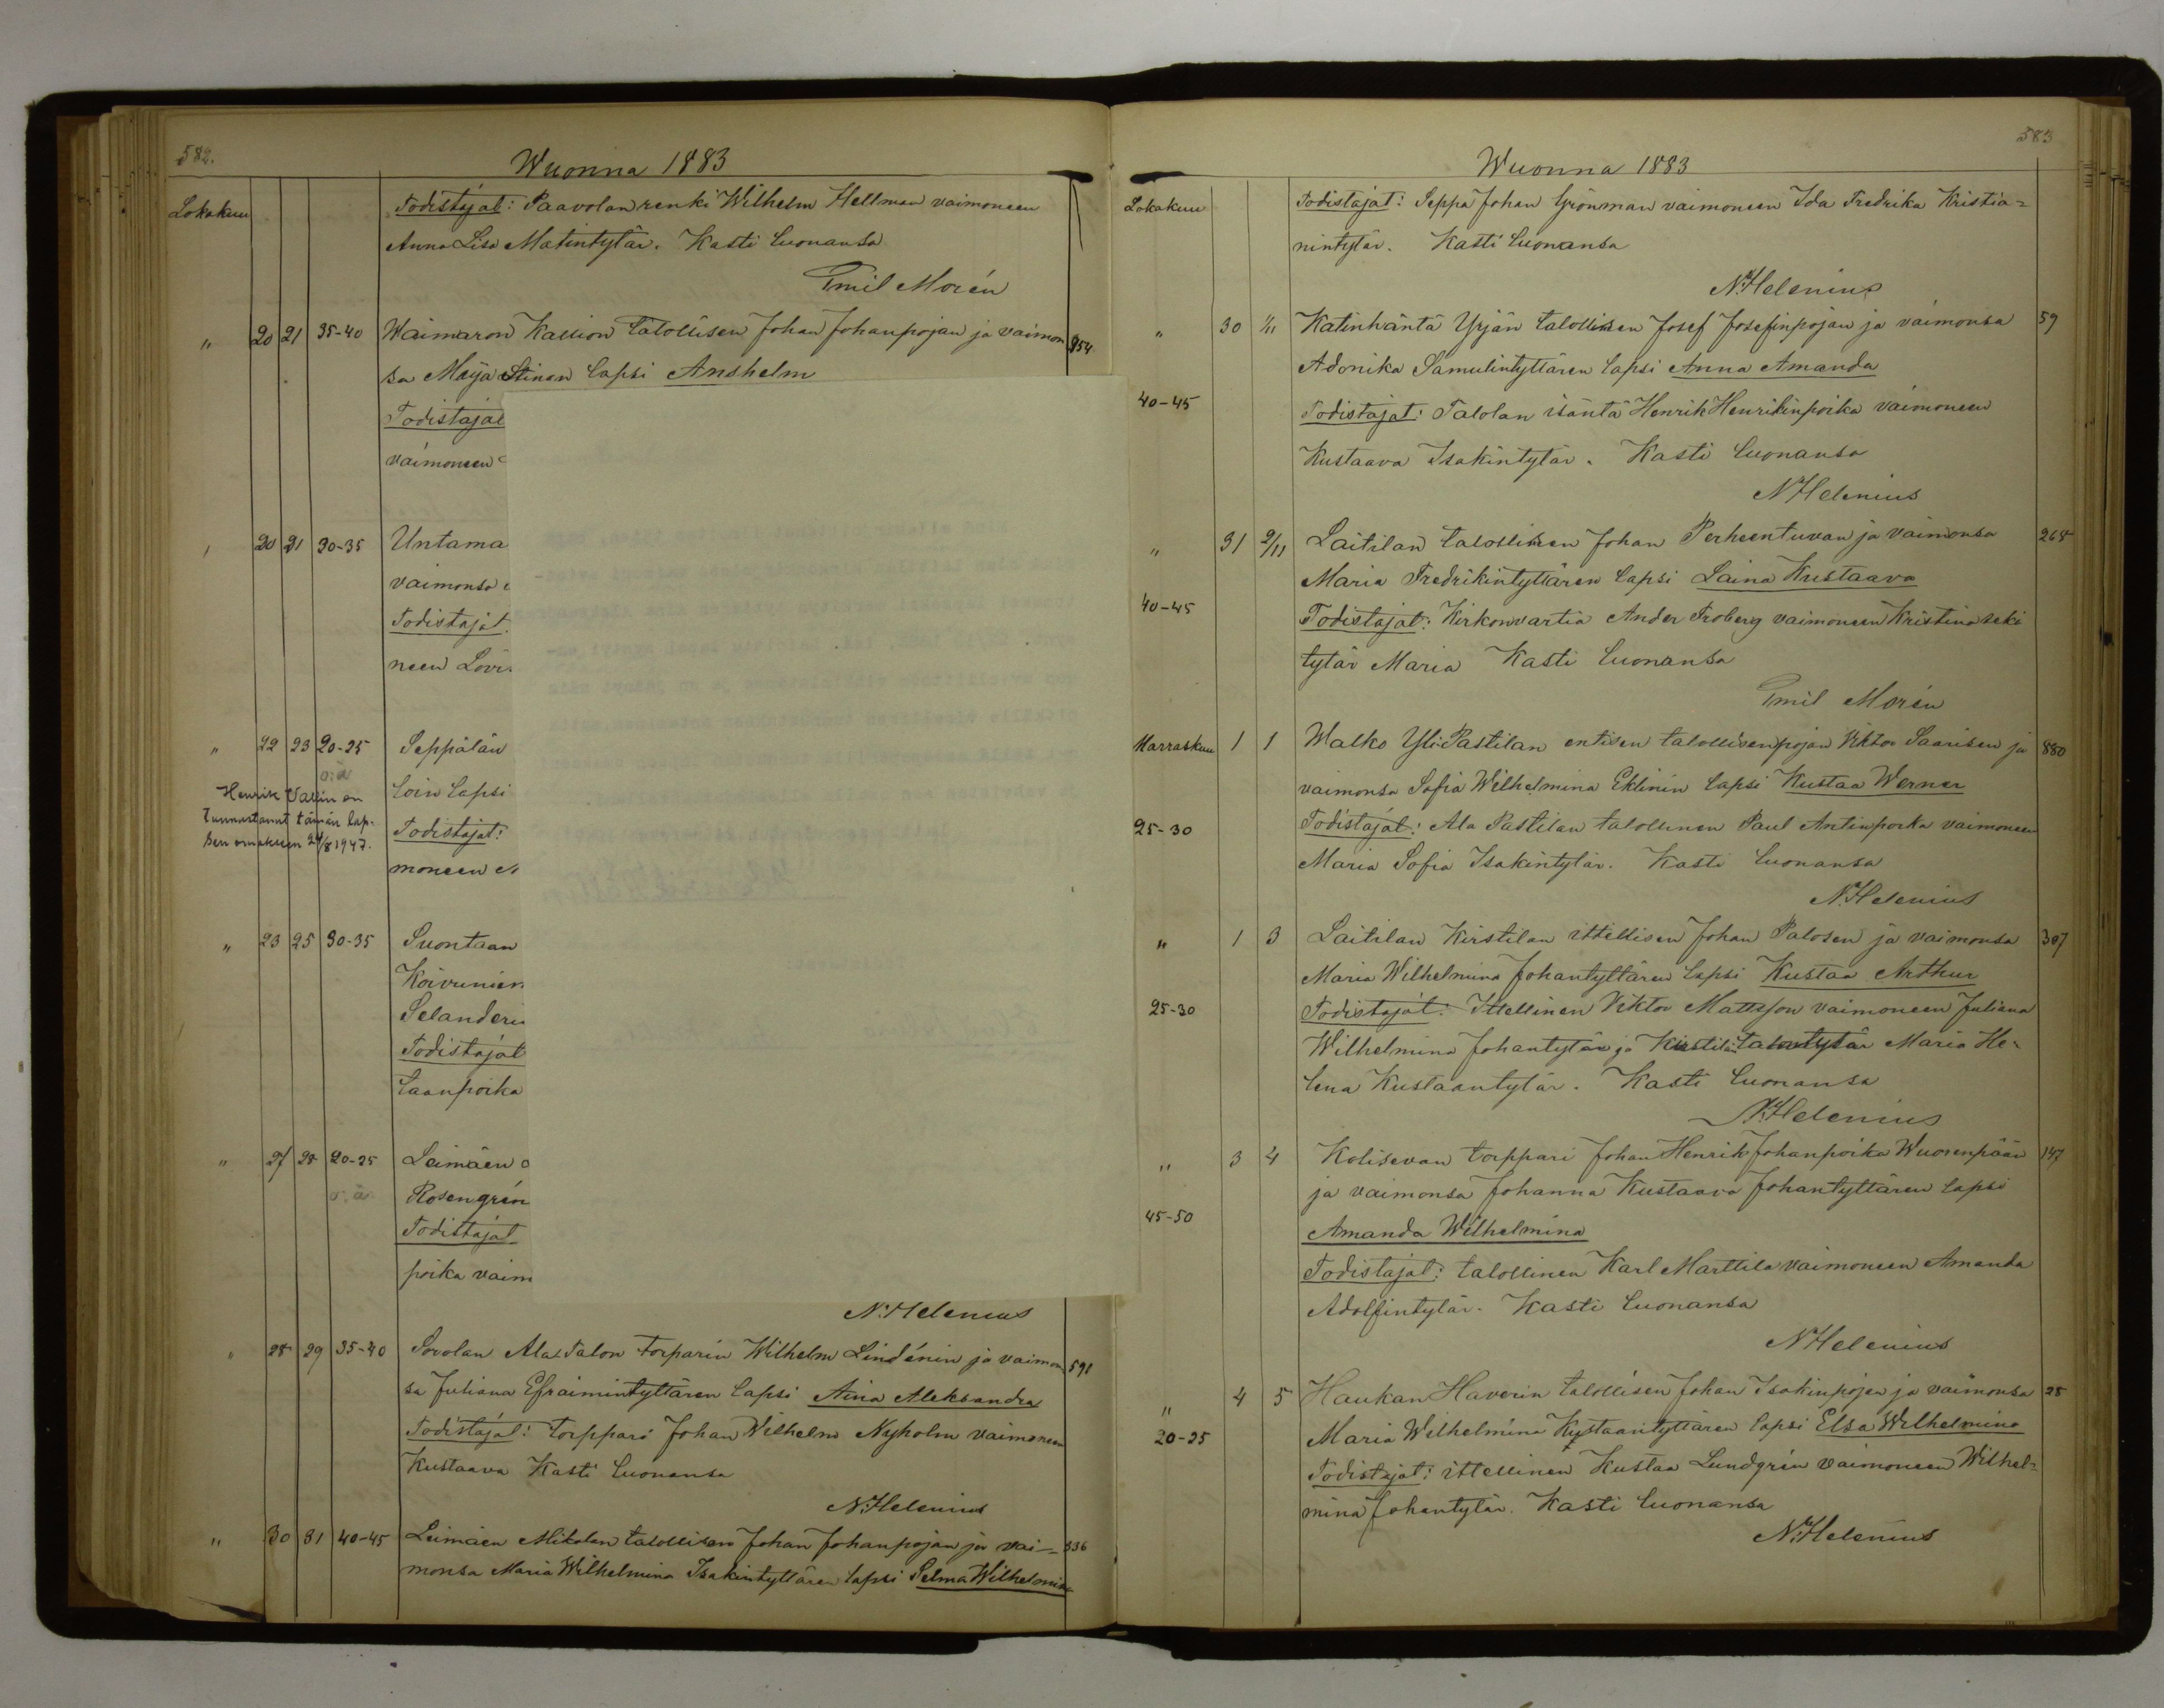 582.
Wuonna 1883
Lokakuu
Todistajat: Paavolan renki Wilhelm Hellman vaimoneen
Anna Lisa Matintytär. Kasti luonansa
Emil Morén
" 20 21 35-40 Waimaron Kallion talollisen Johan Johanpojan ja vaimon 954
sa Maja Stinan lapsi Anshelm
Todistajat
vaimoneen
20 21 30-35 Untama
vaimonsa
Todistajat.
neen Lovi
" 22 23 20-25 Seppälän
o:ä
loin lapsi
Henrik Vallin on
tunnustanut tämän lap-
sen omakseen 24/8 1947.
Todistajat:
moneen
" 23 25 30-35 Suontaan
Koivunien
Selanderi
Todistajat
taanpoika
" 27 28 20-25 Leimäen
o:ä Rosengrén
Todistajat
poika vaim
N. Helenius
" 28 29 35-40 Sovolan Ala-Talon torparin Wilhelm Lindénin ja vaimon 591
sa Juliana Efraimintyttären lapsi Aina Aleksandra
Todistajat: torppari Johan Wilhelm Nyholm vaimoneen
Kustaava Kasti luonansa
N. Helenius
" 30 31 40-45 Leimäen Mikolan talollisen Johan Johanpojan ja vai- 336
monsa Maria Wilhelmina Isakintyttären lapsi Selma Wilhelmina
583
Wuonna 1883
Lokakuu
Todistajat: Seppä Johan Grönman vaimoneen Ida Fredrika Kristia=
nintytär. Kasti luonansa
N. Helenius
" 30 1/11 Katinhäntä Yrjän talollisen Josef Josefinpojan ja vaimonsa 59
Adonika Samulintyttären lapsi Anna Amanda
40-45 Todistajat: Talolan isäntä Henrik Henrikinpoika vaimoneen
Kustaava Isakintytär. Kasti luonansa
N. Helenius
" 31 2/11 Laitilan talollisen Johan Perheentuvan ja vaimonsa 268
Maria Fredrikintyttären lapsi Laina Kustaava
40-45 Todistajat: Kirkonvartia Ander Froberg vaimoneen Kristina sekä
tytär Maria Kasti luonansa
Emil Morén
Marraskuu 1 1 Malko Yli-Pastilan entisen talollisenpojan Viktor Saarisen ja 880
vaimonsa Sofia Wilhelmina Eklinin lapsi Kustaa Werner
25-30 Todistajat: Ala Pastilan talollinen Paul Antinpoika vaimoneen
Maria Sofia Isakintytär. Kasti luonansa
N. Helenius
" 1 3 Laitilan Kirstilan ittellisen Johan Palosen ja vaimonsa 307
Maria Wilhelmina Johantyttären lapsi Kustaa Arthur
25-30 Todistajat: Ittellinen Viktor Mattsson vaimoneen Juliana
Wilhelmina Johantytär ja Kirstilän talontytär Maria He-
lena Kustaantytär. Kasti luonansa
N. Helenius
" 3 4 Kolisevan torppari Johan Henrik Johanpoika Wuorenpään 147
ja vaimonsa Johanna Kustaava Johantyttären lapsi
45-50 Amanda Wilhelmina
Todistajat: talollinen Karl Marttila vaimoneen Amanda
Adolfintytär. Kasti luonansa
N. Helenius
" 4 5 Haukan Haverin talollisen Johan Isakinpojan ja vaimonsa 28
Maria Wilhelmina Kustaantyttären lapsi Elsa Wilhelmina
20-25 Todistajat: ittellinen Kustaa Lundgrén vaimoneen Wilhel=
mina Johantytär. Kasti luonansa
N. Helenius